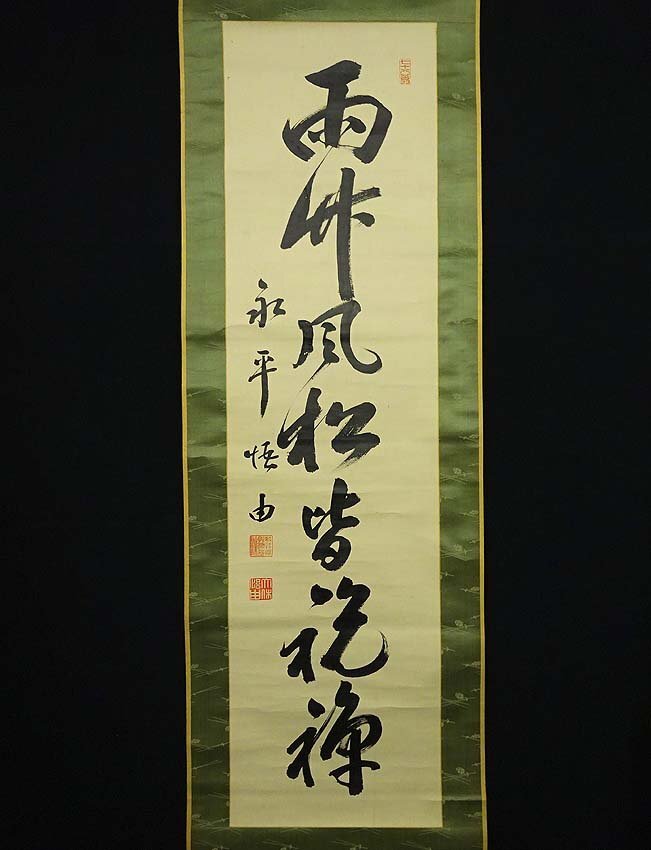 雨竹風松皆説禅
永平悟由